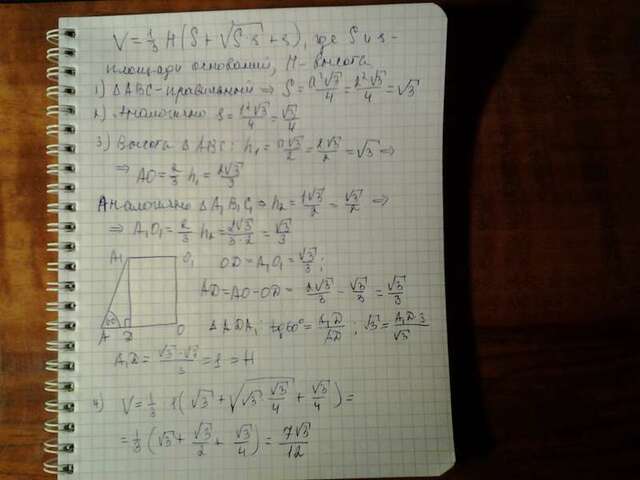 V = 1/3 H (S + √(S·s) + s), где S и s -
площади оснований, H - высота
1) ΔABC - правильный ⇒ S = a²√3/4 = 2²√3/4 = √3
2) Аналогично s = 1²√3/4 = √3/4
3) Высота ΔABC: h₁ = a√3/2 = 2√3/2 = √3 ⇒
⇒ AO = 2/3 h₁ = 2√3/3
Аналогично ΔA₁B₁C₁ ⇒ h₂ = 1√3/2 = √3/2 ⇒
⇒ A₁O₁ = 2/3 h₂ = 2√3/3·2 = √3/3
A₁ O₁ OD = A₁O₁ = √3/3;
AD = AO - OD = 2√3/3 - √3/3 = √3/3
60° A D O ΔADA₁: tg60° = A₁D/AD; √3 = A₁D·3/√3
A₁D = √3·√3/3 = 1 = H
4) V = 1/3 · 1(√3 + √(√3 · √3/4) + √3/4) =
= 1/3 (√3 + √3/2 + √3/4) = 7√3/12